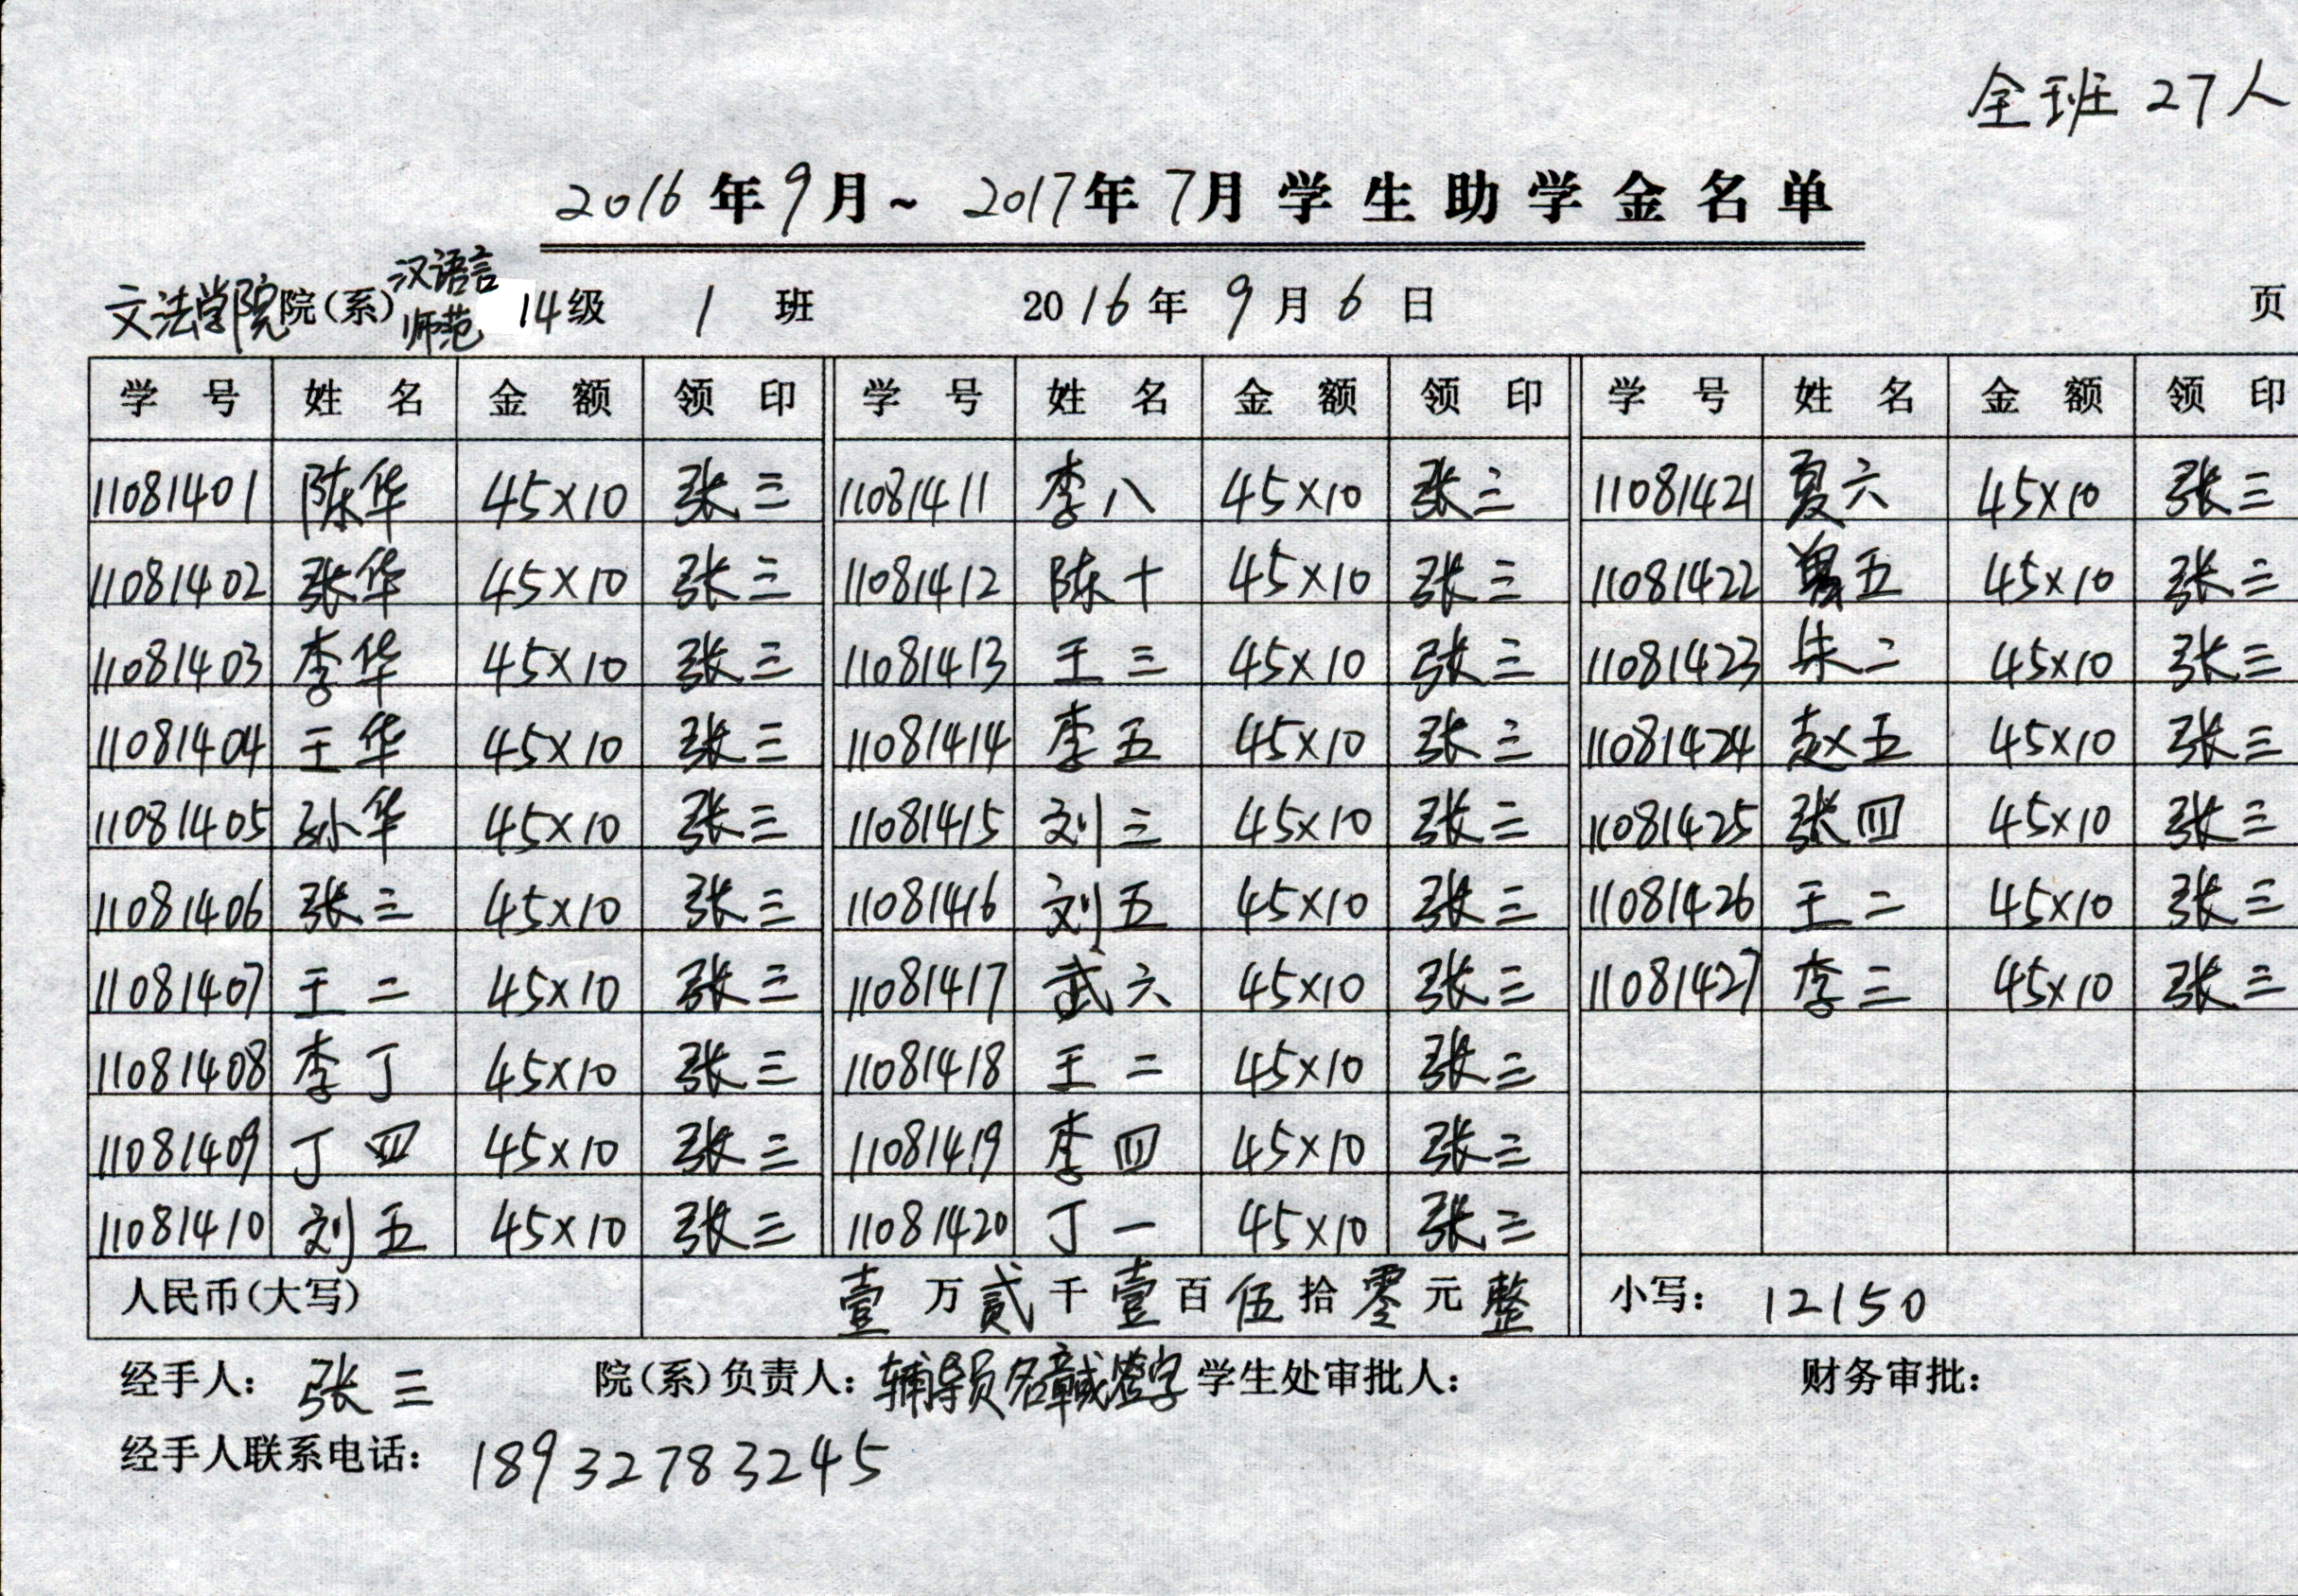 全班 27人
2016年9月~2017年7月学生助学金名单
文法学院院(系)汉语言师范14级 1 班 2016年9月6日 页
学号 姓名 金额 领印 学号 姓名 金额 领印 学号 姓名 金额 领印
11081401 陈华 45×10 张三 11081411 李八 45×10 张三 11081421 夏六 45×10 张三
11081402 张华 45×10 张三 11081412 陈十 45×10 张三 11081422 五 45×10 张三
11081403 李华 45×10 张三 11081413 王三 45×10 张三 11081423 朱二 45×10 张三
11081404 王华 45×10 张三 11081414 李五 45×10 张三 11081424 赵五 45×10 张三
11081405 孙华 45×10 张三 11081415 刘三 45×10 张三 11081425 张四 45×10 张三
11081406 张三 45×10 张三 11081416 刘五 45×10 张三 11081426 王二 45×10 张三
11081407 王二 45×10 张三 11081417 武六 45×10 张三 11081427 李三 45×10 张三
11081408 李丁 45×10 张三 11081418 王二 45×10 张三
11081409 丁四 45×10 张三 11081419 李四 45×10 张三
11081410 刘五 45×10 张三 11081420 丁一 45×10 张三
人民币(大写) 壹万贰千壹百伍拾零元整 小写: 12150
经手人: 张三 院(系)负责人: 辅导员名章或签字 学生处审批人: 财务审批:
经手人联系电话: 18932783245